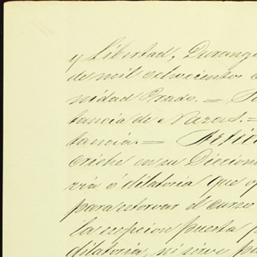 y Libertad, Durang
de mil ochocientos
nidad Prado. = 
tancia de Nazas. =
tancia. = Artí
criche en su Diccion
via ó dilatoria que
para retorcar el curso
la escepcion puesta p
dilatoria, ni sirve p